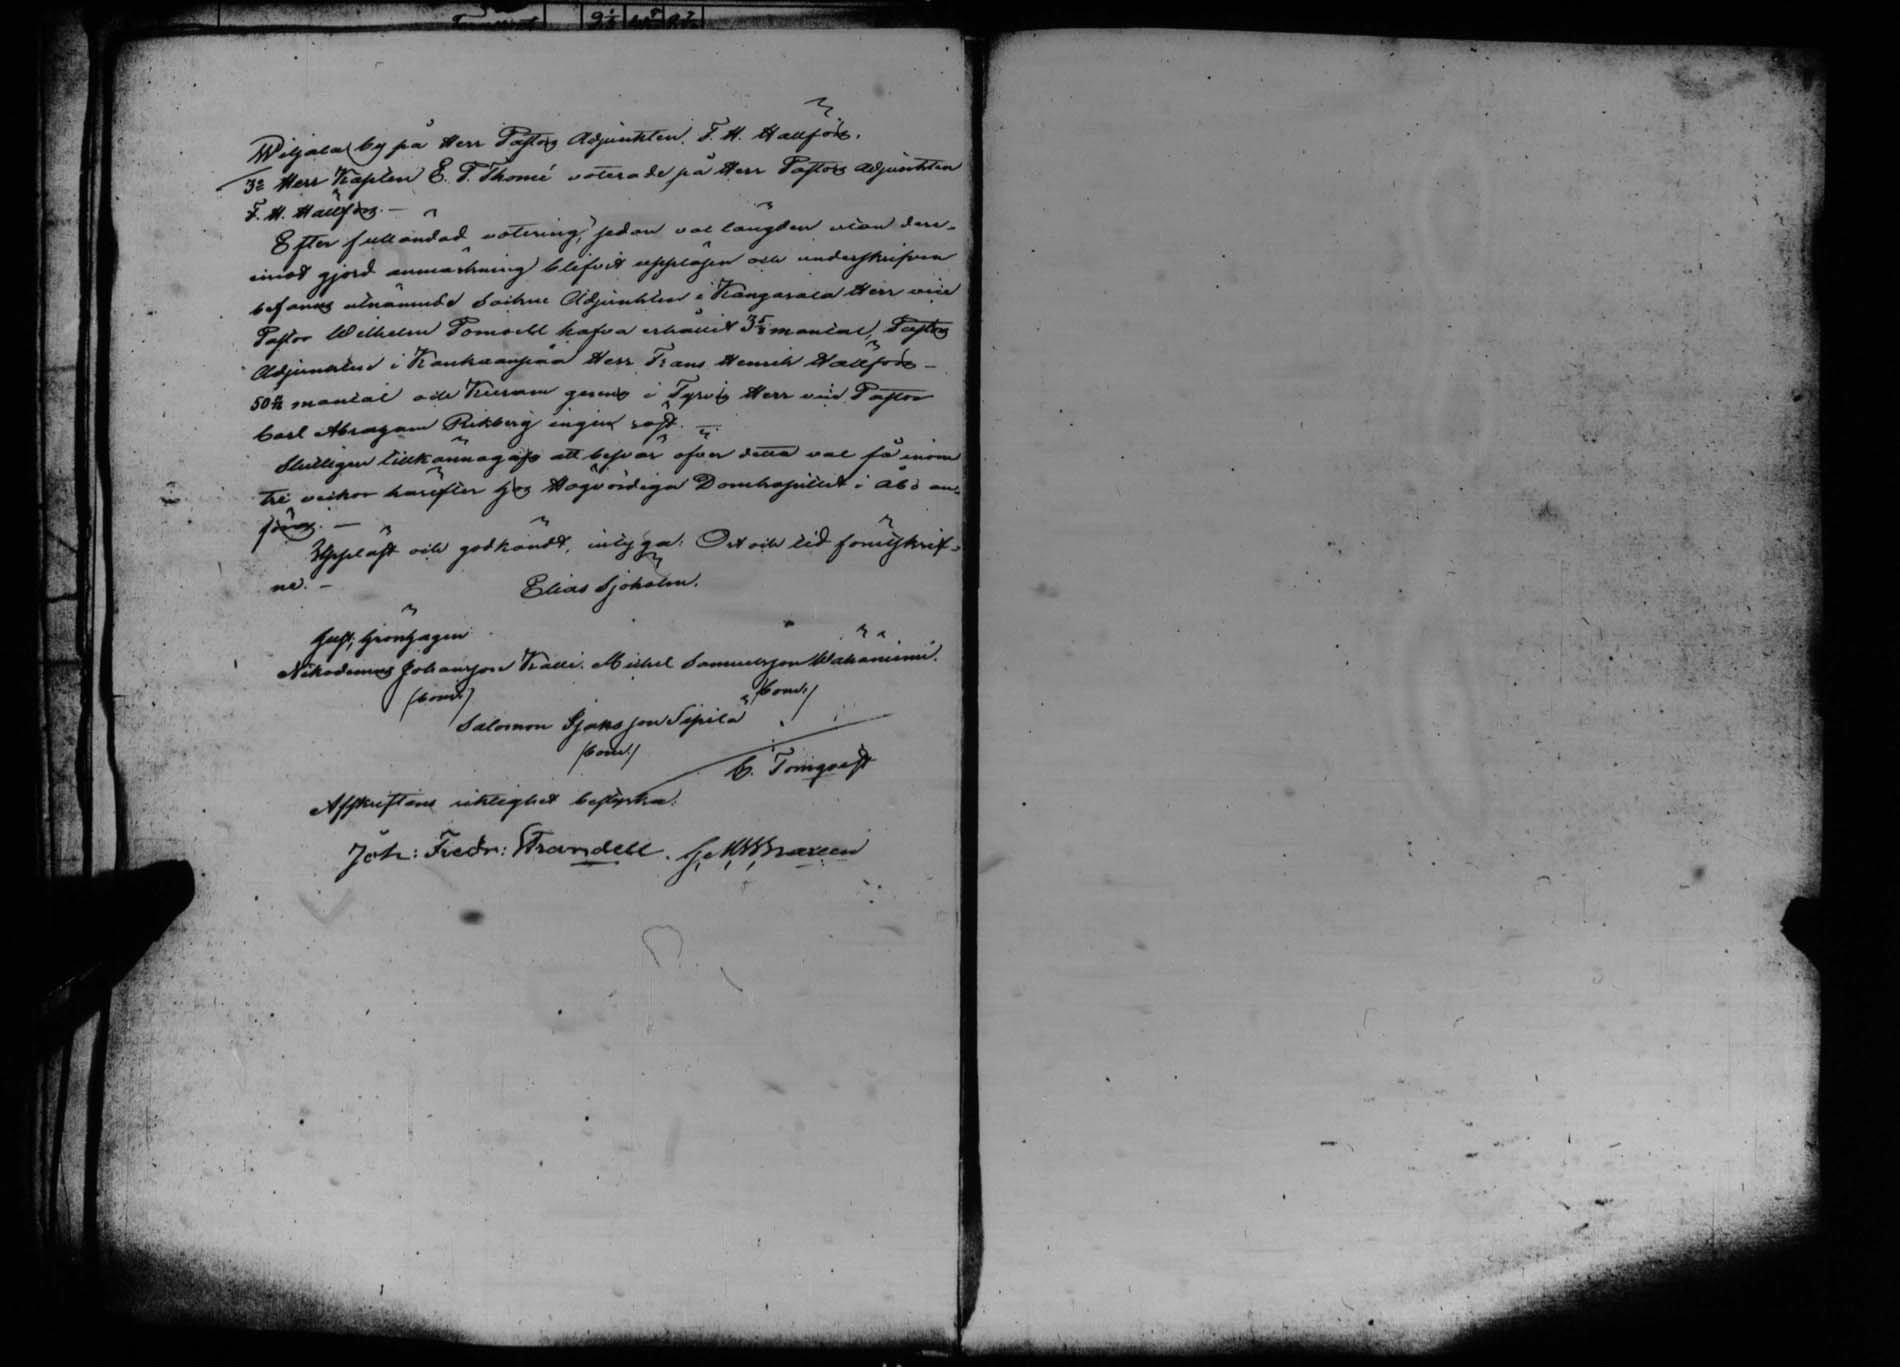 Wiljala by på Herr Pastors Adjunkten F. H. Hällfors.
3:o Herr Kapten E. T. Thomé voterade på Herr Pastors Adjunkten
F. H. Hällfors. —
Efter fulländad votering, sedan vallängden utan dere-
imot gjord anmärkning blifvit uppläsen och underskrifven
befanns utnämnde Sockne Adjunkten i Kangasala Herr vice
Pastor Wilhelm Tomsell hafva erhållit mantal, Pastors
Adjunkten i Kankaanpää Herr Frans Henrik Hällfors —
mantal och i Tyrvis Herr vice Pastor
Carl Abragam Rikberg ingen röst. —
Slutligen tillkännagafs att besvär öfver detta val få inom
tre veckor härefter hos Högvördiga Domkapitlet i Åbo an-
föras. —
Uppläst och godkändt, intyga: Ort och tid förutskrif-
ne. — Elias Sjöholm.
Gust. Grönhagen
Nikodemus Johansson Kalli. Mickel Samuelsson Wähäniemi.
(bom.) (bom.)
Salomon Isaksson Sipilä
(bom.)
C. Tornqvist
Afskriftens riktighet bestyrka:
Joh: Fredr: Strandell.